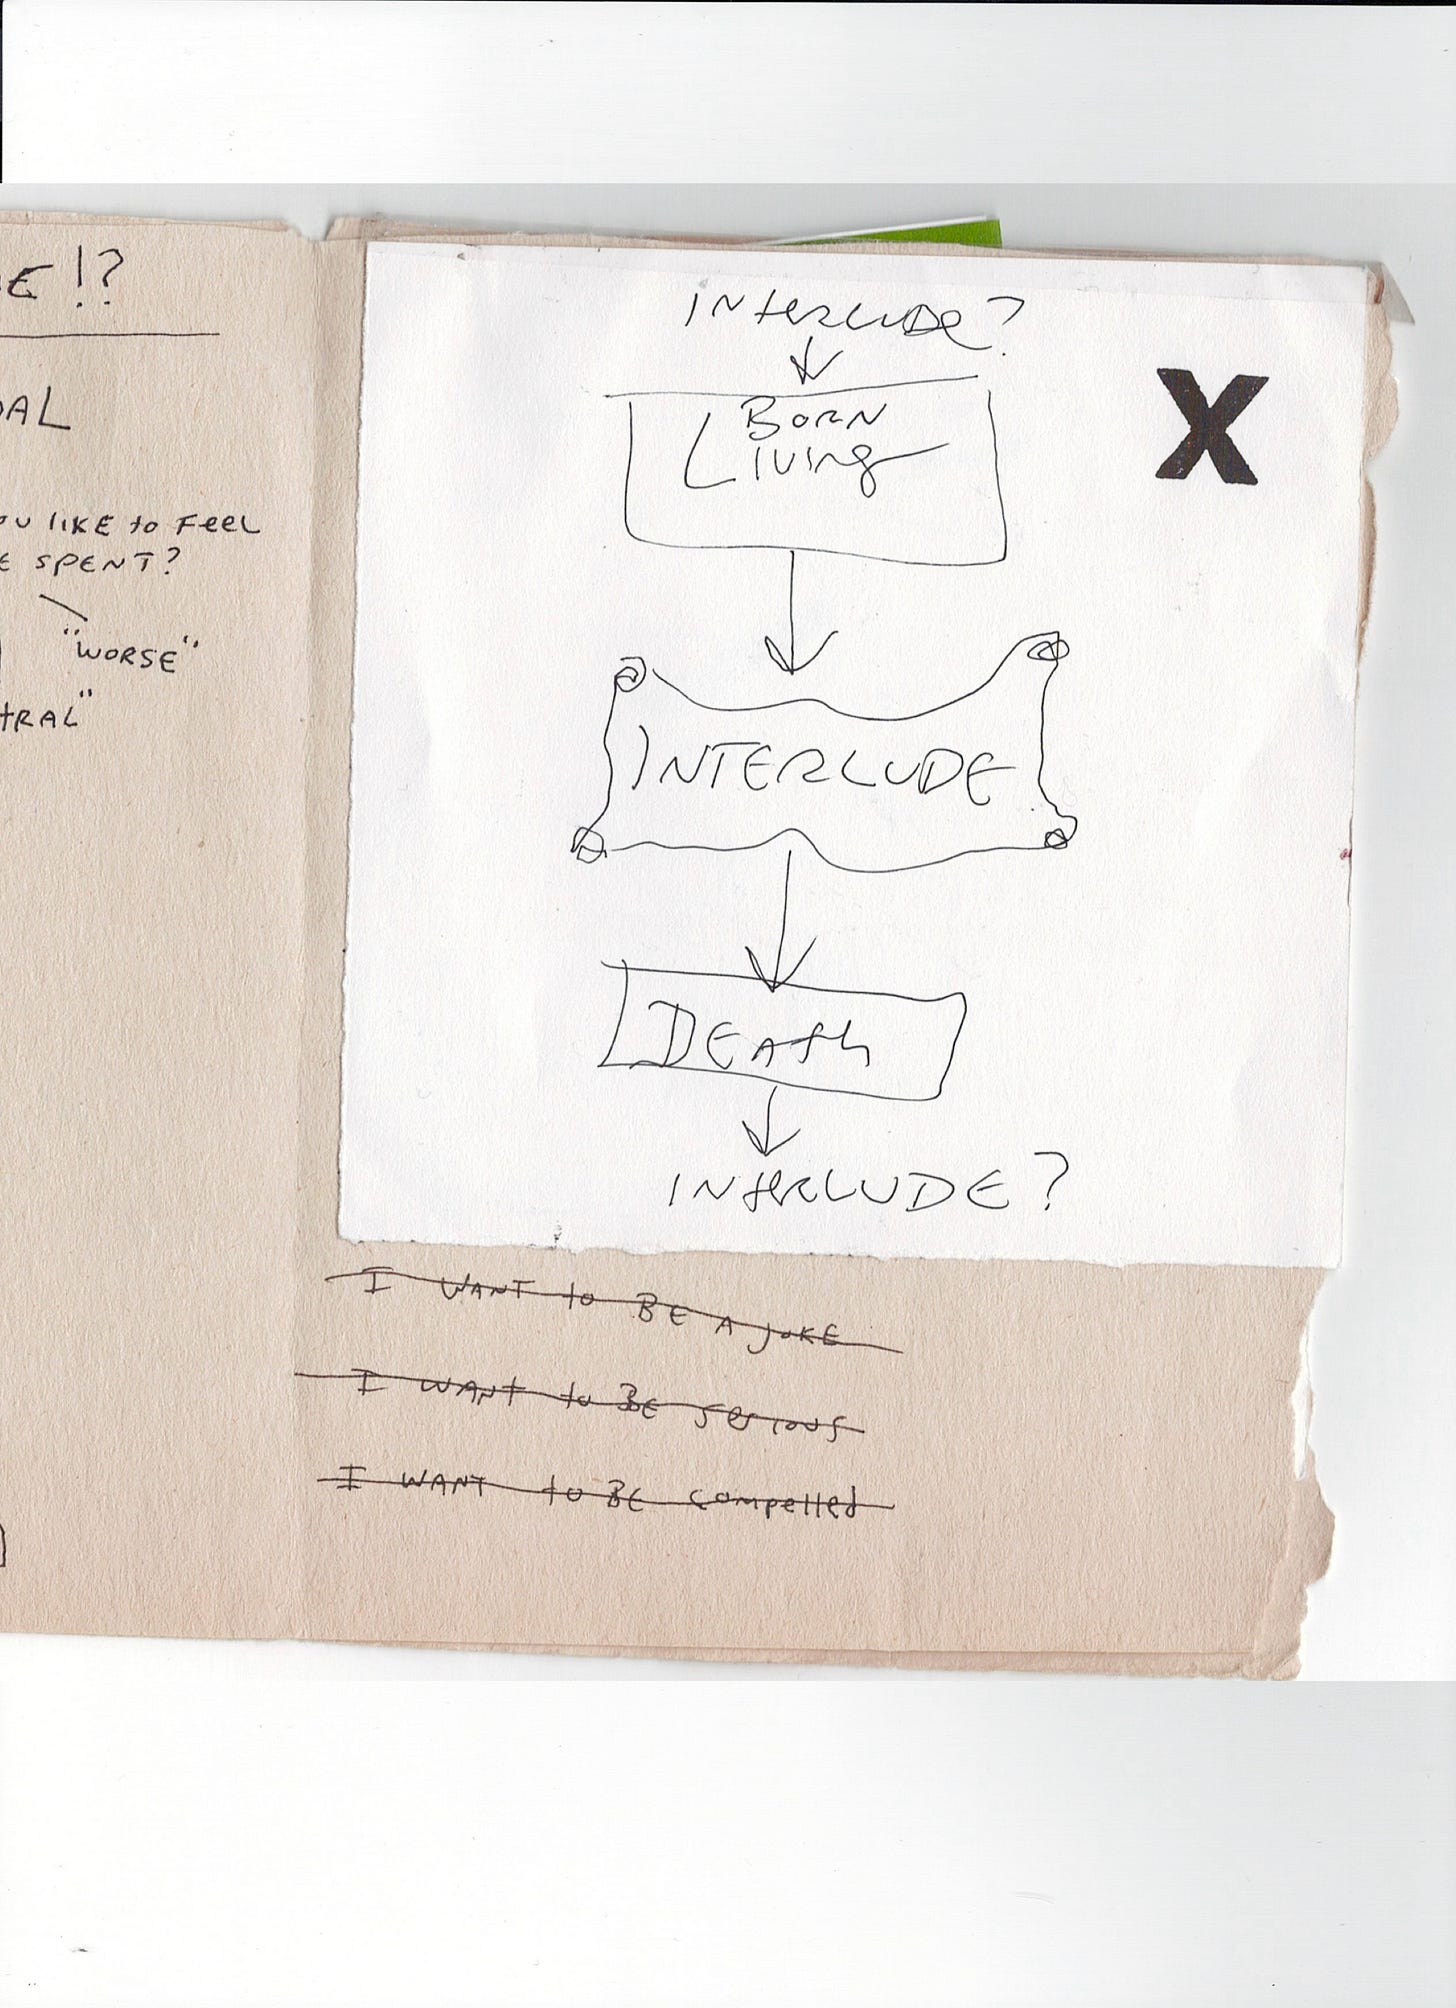 E!?
OAL
OU LIKE to FEEL
E SPENT?
"WORSE"
tRAL"
INterLUDe?
X
BORN
Living
INTERLUDE
DEAth
INterLUDE?
I WANT to BE A joKE
I WANT to BE serious
I WANT to BE compelled